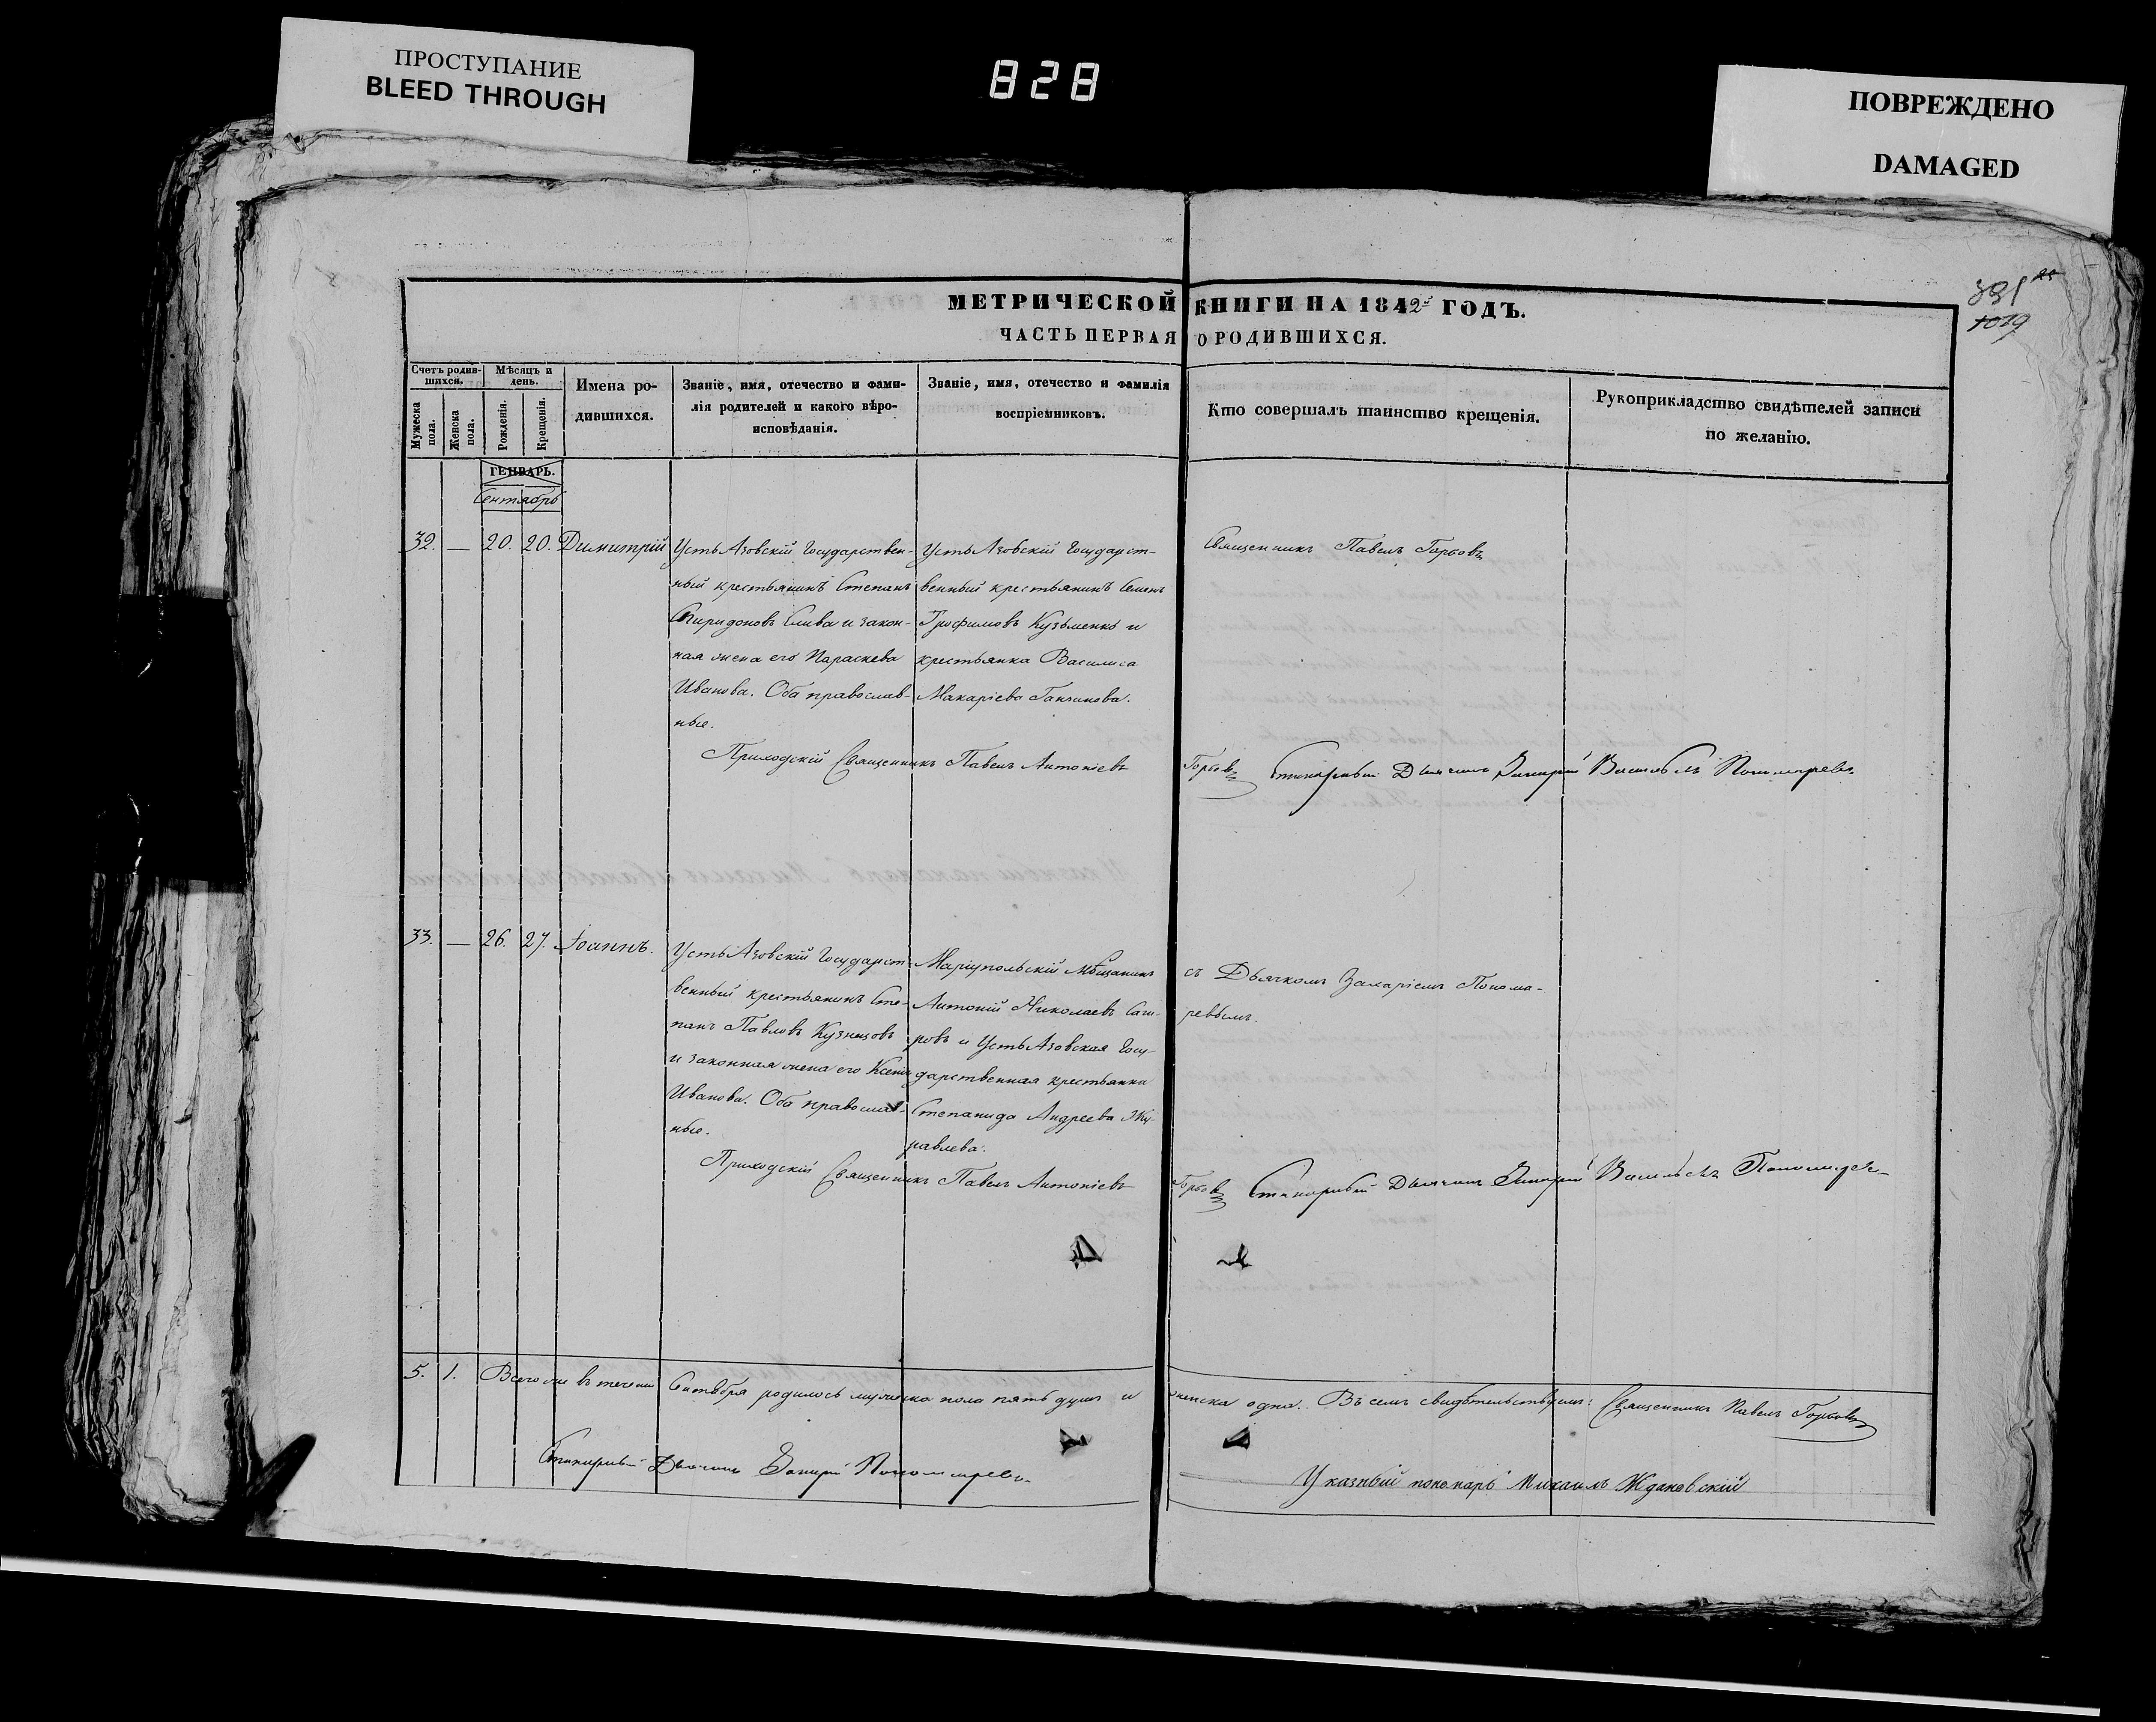 ПРОСТУПАНИЕ
BLEED THROUGH
828
ПОВРЕЖДЕНО
DAMAGED
391
1019
МЕТРИЧЕСКОЙ КНИГИ НА 1842 ГОДЪ.
ЧАСТЬ ПЕРВАЯ О РОДИВШИХСЯ.
Счетъ родив-
шихся.
Мужеска
пола.
Женска
пола.
Мѣсяцъ и
день.
Рожденія.
Крещенія.
Имена ро-
дившихся.
Званіе, имя, отечество и фами-
лія родителей и какого вѣро-
исповѣданія.
Званіе, имя, отечество и фамилія
воспріемниковъ.
Кто совершалъ таинство крещенія.
Рукоприкладство свидѣтелей записи
по желанію.
ГЕНВАРЬ.
Сентябрь
32. — 20. 20. Димитрій
Усть Азовскій Государствен-
ный крестьянинъ Степанъ
Спиридоновъ Слива и закон-
ная жена его Параскева
Иванова. Оба православ-
ные.
Усть Азовскій Государст-
венный крестьянинъ Семенъ
Трофимовъ Кузьменко и
крестьянка Василиса
Макаріева Ганчинова.
Священникъ Павелъ Горбовъ
Приходскій Священникъ Павелъ Антоніевъ Горбовъ Стихарный Дьячокъ Захарій Васильевъ Пономаревъ
33. — 26. 27. Іоаннъ.
Усть Азовскій Государст-
венный крестьянинъ Сте-
панъ Павловъ Кузнецовъ
и законная жена его Ксенія
Иванова. Оба православ-
ные.
Маріупольскій Мѣщанинъ
Антоній Николаевъ Саги-
ровъ и Усть Азовская Госу-
дарственная крестьянка
Степанида Андреева Жу-
равлева.
съ Дьячкомъ Захаріемъ Понома-
ревымъ.
Приходскій Священникъ Павелъ Антоніевъ Горбовъ Стихарный Дьячокъ Захарій Васильевъ Пономарев
5. 1. Всего же въ теченіи Сентября родилось мужеска пола пять душъ и женска одна. Въ семъ свидѣтельствуемъ: Священникъ Павелъ Горбовъ
Стихарный Дьячокъ Захарій Пономаревъ
Указный пономарь Михаилъ Ждановскій